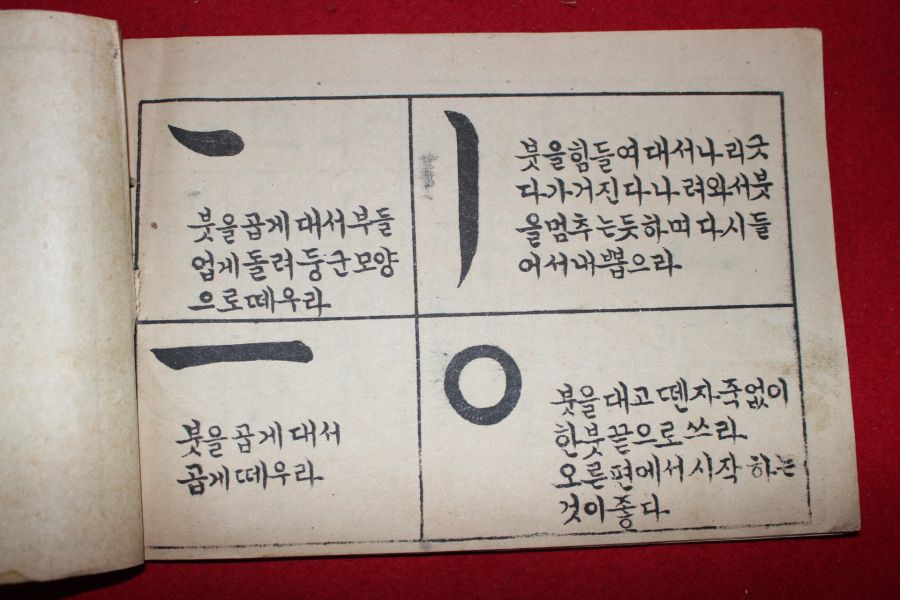 붓을 곱게 대서 부들
업게 돌려 둥군 모양
으로 떼우라
붓을 힘들여 대서 나리긋
다가 거진 다 나려와서 붓
을 멈추는듯 하며 다시 들
어서 내뽑으라
붓을 곱게 대서
곱게 떼우라
붓을 대고 뗀 자죽 없이
한 붓끝으로 쓰라
오른편에서 시작 하는
것이 좋다